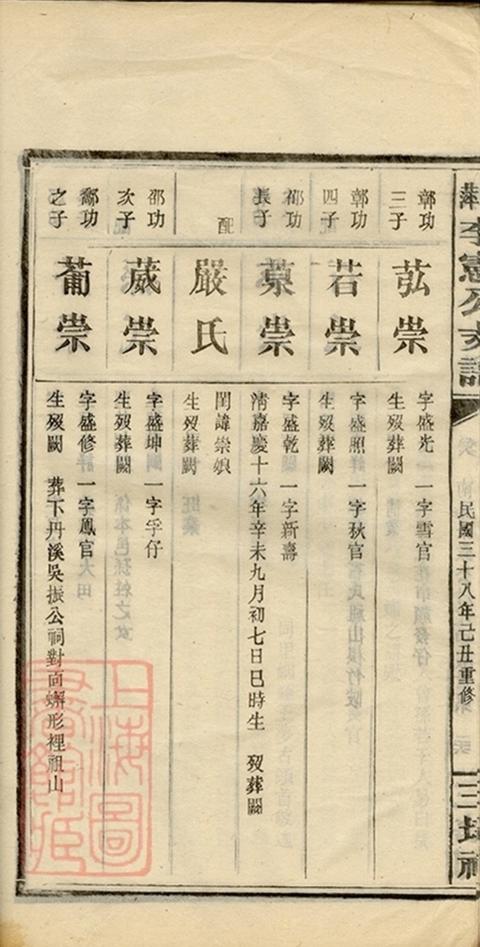 李憲公支譜
民國三十八年己丑重修
彰功三子
苰崇
字盛光 一字雪官
生歿葬闕
彰功四子
若崇
字盛照 一字狄官
生歿葬闕
邵功長子
崇
字盛乾 一字新壽
淸嘉慶十六年辛未九月初七日巳時生 歿葬闕
配
嚴氏
閨諱崇娘
生歿葬闕
邵功次子
葳崇
字盛坤 一字孚仔
生歿葬闕
鄰功之子
蔔崇
字盛修 一字鳳官
生歿闕 葬下丹溪吳振公祠對面蠏形裡祖山
上海圖書館藏